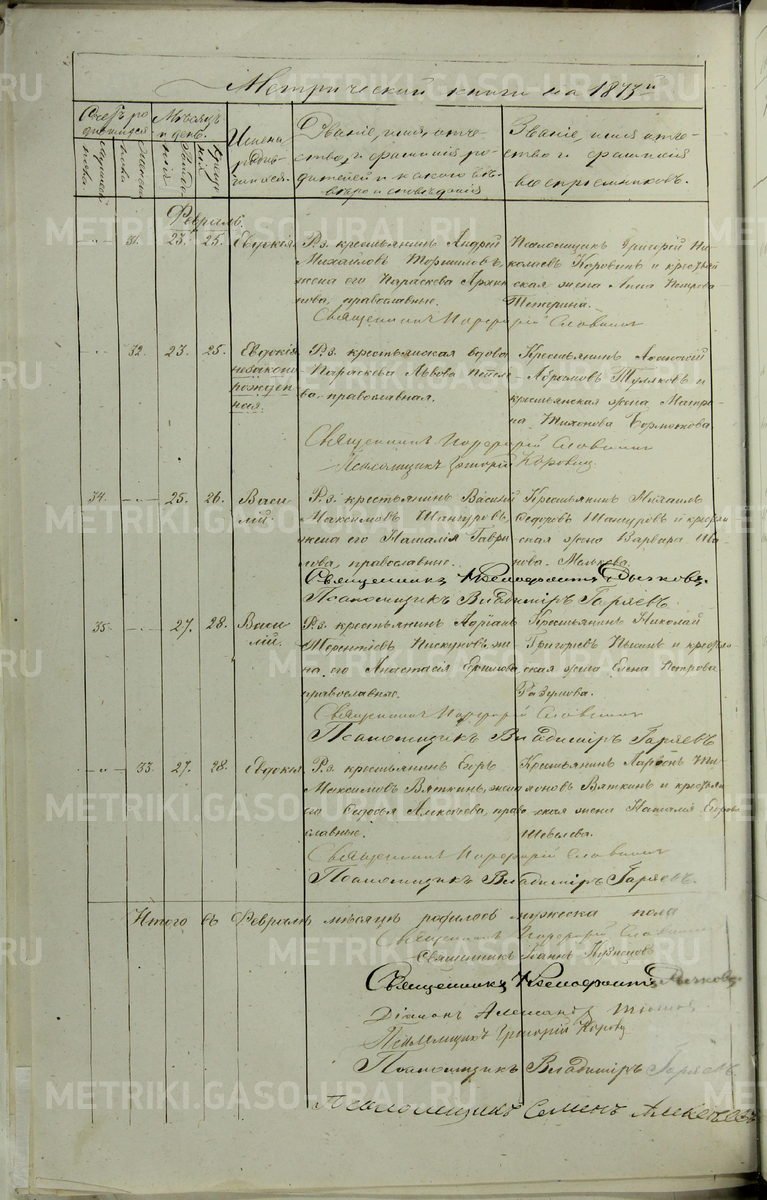 Метрической книги на 1873й
Счетъ ро-
дившихся
Мѣсяцъ
и день
Имена
родив-
шихся.
Званіе, имя, отче-
ство, и фамилія ро-
дителей и какого вѣ-
роисповѣданія
Званіе, имя отче-
ство и фамилія
воспріемниковъ.
Февраль.
31. 23. 25. Евдокія
Р.з. крестьянинъ Андрей
Михайловъ
жена его Параскева
нова, православные.
Псаломщикъ Григорій Ни-
колаевъ Коровинъ и крестьян
ская жена Анна Петрова
Священникъ Порфирій Словцовъ
32. 23. 25. Евдокія
незакон
рожден-
ная.
Р.з. крестьянская вдова
Параскева Львова
ва, православная.
Крестьянинъ Афанасій
Абрамовъ Туляковъ и
крестьянская жена Матре-
на Тихонова
Священникъ Порфирій Словцовъ
Псаломщикъ Григорій Коровинъ.
34. 25. 26. Васи-
лій.
Р.з. крестьянинъ Василій
Максимовъ Шанцуровъ,
жена его Наталія Гаври
лова, православные.
Крестьянинъ Михаилъ
Федоровъ Шанцуровъ и крестьян
ская жена Варвара Ива
нова
Священникъ Ксенофонтъ
Псаломщикъ Владиміръ Гаряевъ.
35. 27. 28. Васи-
лій.
Р.з. крестьянинъ Адріанъ
Терентіевъ Пискуновъ, же
на его Анастасія
православные.
Крестьянинъ Николай
Григорьевъ и крестьян
ская жена Елена Петрова
Разумова.
Священникъ Порфирій Словцовъ
Псаломщикъ Владиміръ Гаряевъ
33. 27. 28. Евдокія
Р.з. крестьянинъ Егоръ
Максимовъ Вяткинъ, жена
его Федосья Алексѣева, право
славные.
Крестьянинъ Ларіонъ Ти
моновъ Вяткинъ и крестьян
ская жена Наталія Егорова
Шевелева.
Священникъ Порфирій Словцовъ
Псаломщикъ Владиміръ Гаряевъ.
Итого въ Февралѣ мѣсяцѣ родилось мужеска пола
Священникъ Порфирій Словцовъ
Священникъ Іоаннъ
Священникъ Ксенофонтъ
Діаконъ Александръ
Псаломщикъ Григорій Коров
Псаломщикъ Владиміръ Гаряевъ.
Псаломщикъ Семенъ Алексѣев
METRIKI.GASO-URAL.RU